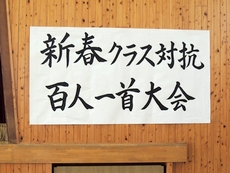 新春クラス対抗
百人一首大会